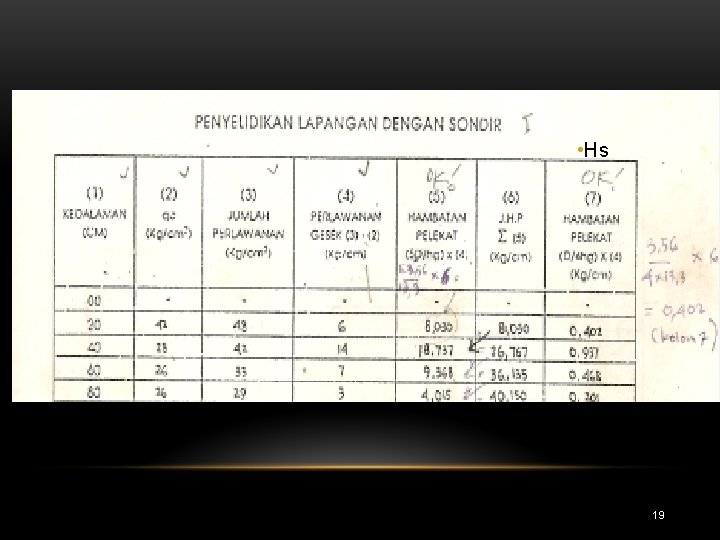 PENYELIDIKAN LAPANGAN DENGAN SONDIR I
•Hs
OK! OK!
(1) (2) (3) (4) (5) (6) (7)
KEDALAMAN qc JUMLAH PERLAWANAN HAMBATAN J.H.P HAMBATAN
(CM) (Kg/cm²) PERLAWANAN GESEK (3) - (2) PELEKAT Σ (5) PELEKAT
(Kg/cm²) (Kg/cm) (Kg/cm) (D/4hg) x (4)
(Kg/cm)
3,56 x 6
4x13,3
= 0,402
(kolom 7)
00 - - - - - -
20 42 48 6 8,030 8,030 0,402
40 14 18,737 26,767 0,937
60 26 33 7 9,368 36,135 0,468
80 26 29 3 4,015 40,150
19